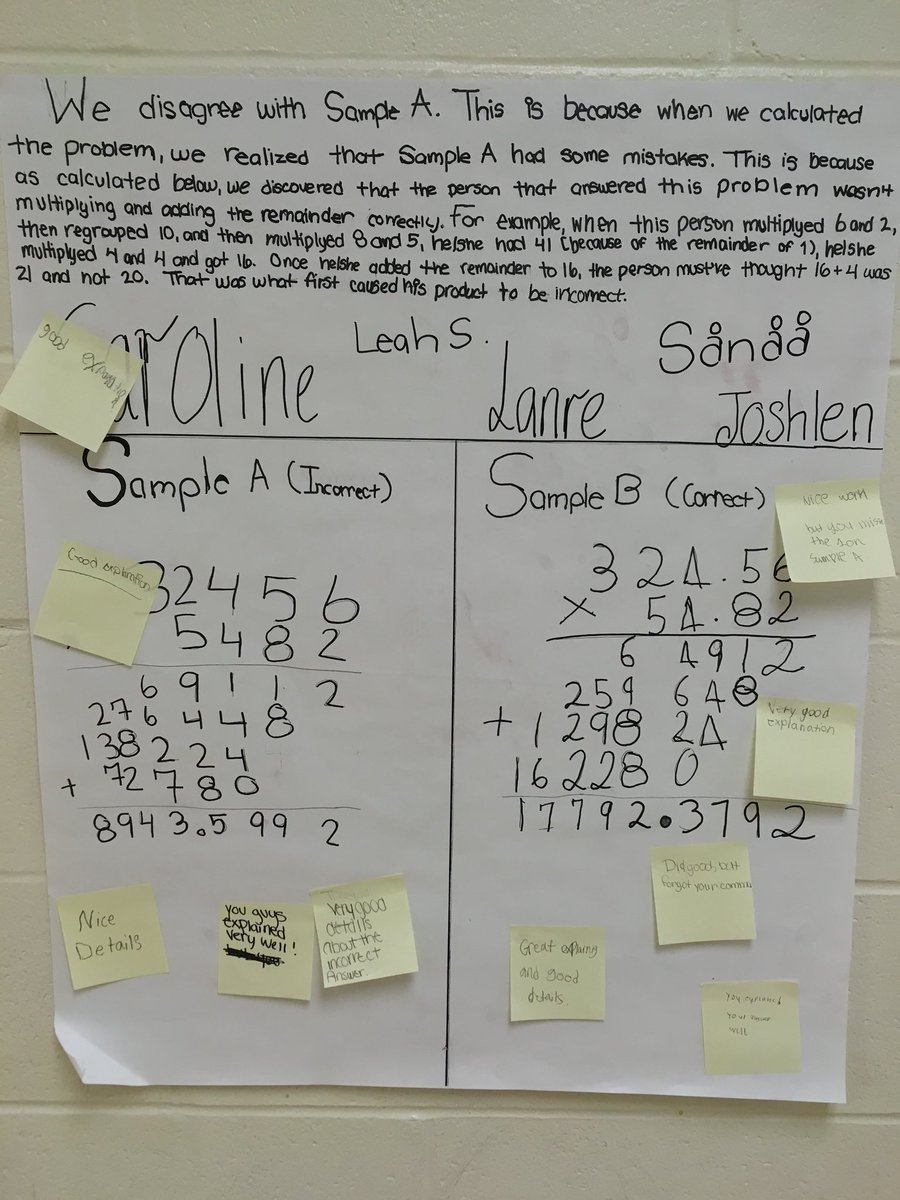 We disagree with Sample A. This is because when we calculated
the problem, we realized that Sample A had some mistakes. This is because
as calculated below, we discovered that the person that answered this problem wasn't
multiplying and adding the remainder correctly. For example, when this person multiplyed 6 and 2,
then regrouped 10, and then multiplyed 8 and 5, he/she had 41 (because of the remainder of 1), he/she
multiplyed 4 and 4 and got 16. Once he/she added the remainder to 16, the person must've thought 16+4 was
21 and not 20. That was what first caused his product to be incorrect.
good
Caroline
Leah S.
Lanre
Sånåå
Joshlen
Sample A (Incorrect)
Good explanation
32456
5482
69112
276448
138224
+ 72780
8943.5992
Nice
Details
You guys
explained
very well!
very good
details
about the
incorrect
Answer.
Sample B (Correct)
Nice work
but you miss
the son
sample A
324.56
× 54.82
64912
259648
+ 129824
162280
17792.3792
Very good
explanation
Did good, but
forgot your comma
Great explaing
and good
details
You explained
your answer
well